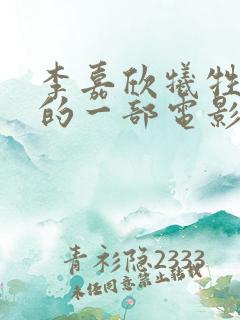 李嘉欣犧牲
的一部電影
青衫隐2333
未经同意禁止转载